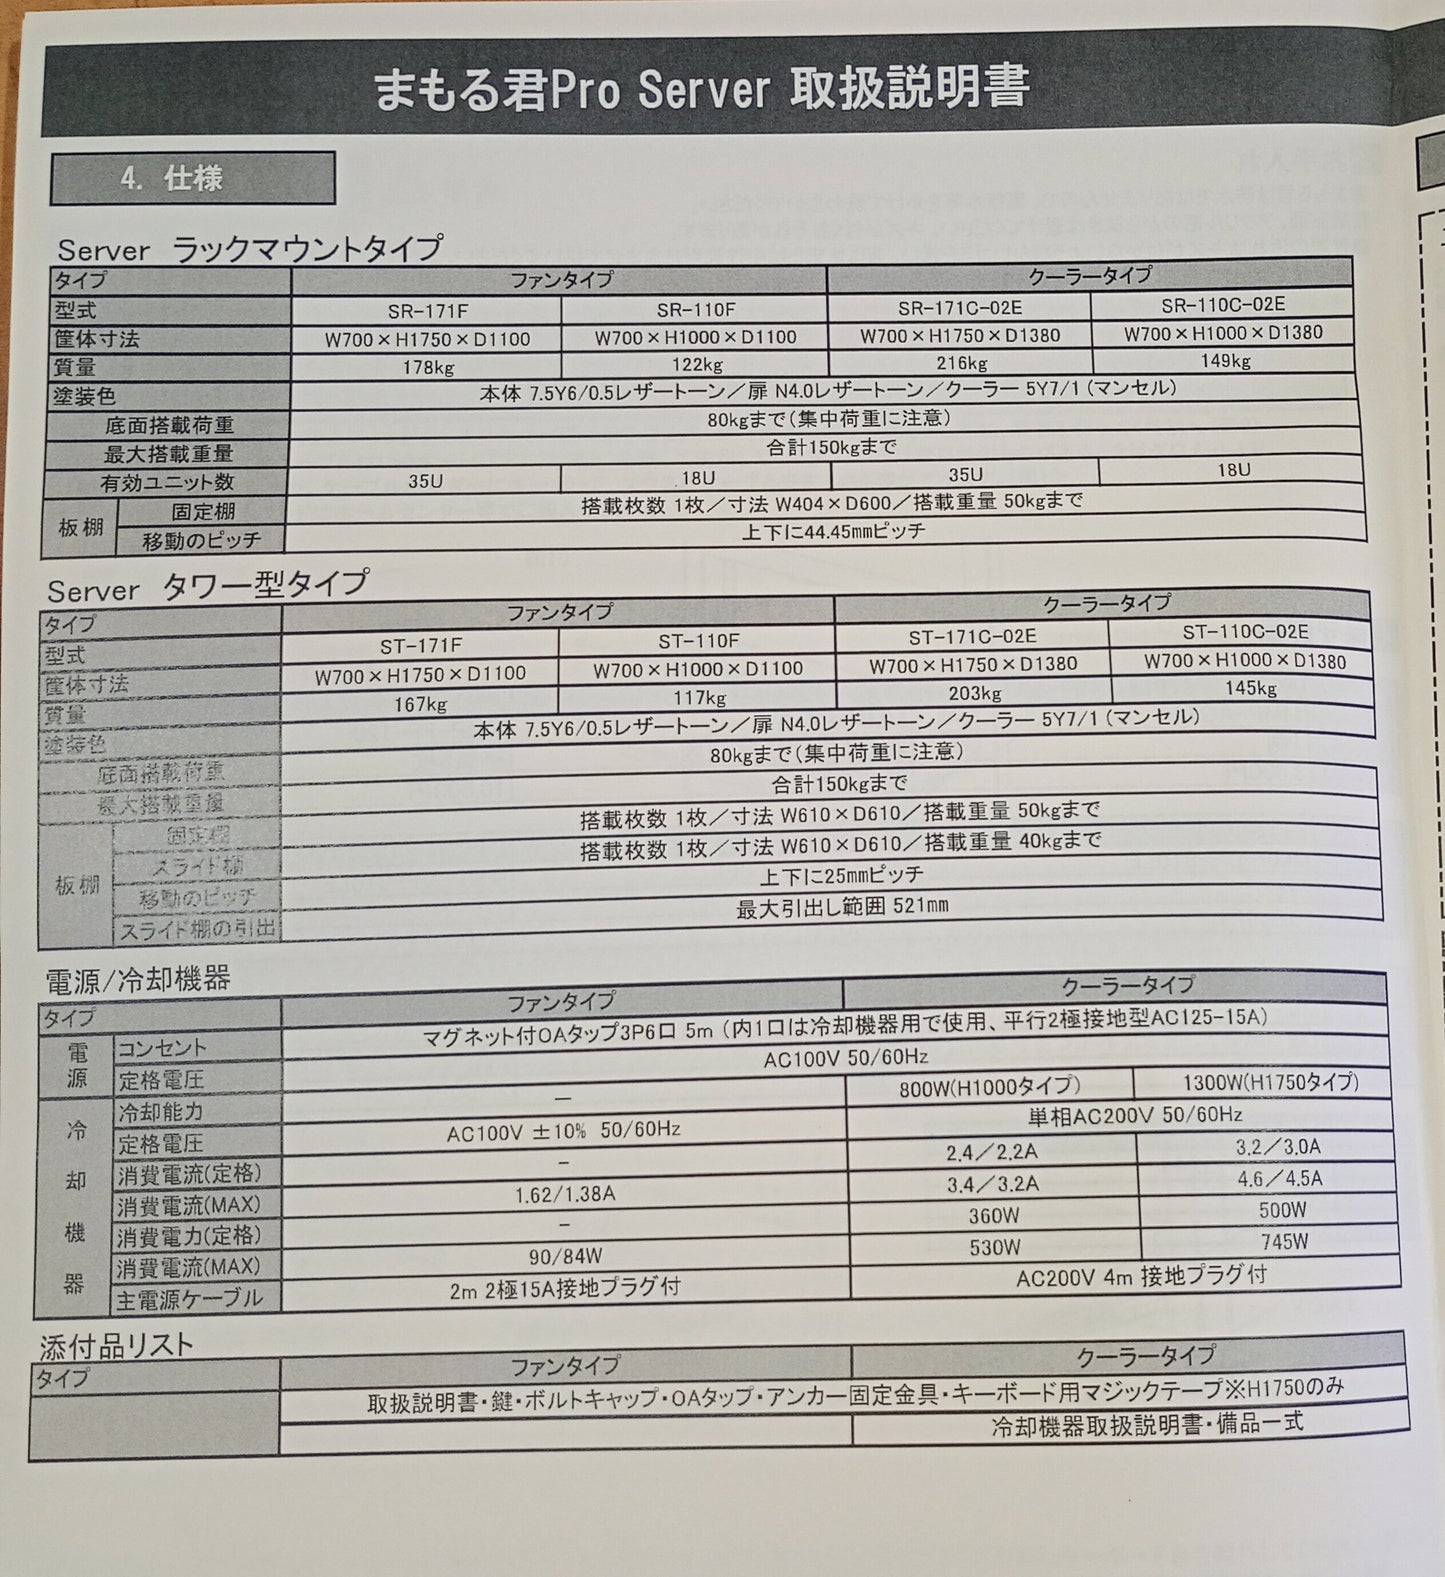 まもる君Pro Server 取扱説明書
4. 仕様
Server ラックマウントタイプ
タイプ ファンタイプ クーラータイプ
型式 SR-171F SR-110F SR-171C-02E SR-110C-02E
筐体寸法 W700×H1750×D1100 W700×H1000×D1100 W700×H1750×D1380 W700×H1000×D1380
質量 178kg 122kg 216kg 149kg
塗装色 本体 7.5Y6/0.5レザートーン／扉 N4.0レザートーン／クーラー 5Y7/1 (マンセル)
底面搭載荷重 80kgまで(集中荷重に注意)
最大搭載重量 合計150kgまで
有効ユニット数 35U 18U 35U 18U
板棚 固定棚 搭載枚数 1枚／寸法 W404×D600／搭載重量 50kgまで
移動のピッチ 上下に44.45mmピッチ
Server タワー型タイプ
タイプ ファンタイプ クーラータイプ
型式 ST-171F ST-110F ST-171C-02E ST-110C-02E
筐体寸法 W700×H1750×D1100 W700×H1000×D1100 W700×H1750×D1380 W700×H1000×D1380
質量 167kg 117kg 203kg 145kg
塗装色 本体 7.5Y6/0.5レザートーン／扉 N4.0レザートーン／クーラー 5Y7/1 (マンセル)
底面搭載荷重 80kgまで(集中荷重に注意)
最大搭載重量 合計150kgまで
板棚 固定棚 搭載枚数 1枚／寸法 W610×D610／搭載重量 50kgまで
スライド棚 搭載枚数 1枚／寸法 W610×D610／搭載重量 40kgまで
移動のピッチ 上下に25mmピッチ
スライド棚の引出 最大引出し範囲 521mm
電源/冷却機器
タイプ ファンタイプ クーラータイプ
電源 コンセント マグネット付OAタップ3P6口 5m (内1口は冷却機器用で使用、平行2極接地型AC125-15A)
定格電圧 AC100V 50/60Hz
冷却機器 冷却能力 － 800W(H1000タイプ) 1300W(H1750タイプ)
定格電圧 AC100V ±10% 50/60Hz 単相AC200V 50/60Hz
消費電流(定格) - 2.4／2.2A 3.2／3.0A
消費電流(MAX) 1.62/1.38A 3.4／3.2A 4.6／4.5A
消費電力(定格) - 360W 500W
消費電流(MAX) 90/84W 530W 745W
主電源ケーブル 2m 2極15A接地プラグ付 AC200V 4m 接地プラグ付
添付品リスト
タイプ ファンタイプ クーラータイプ
取扱説明書・鍵・ボルトキャップ・OAタップ・アンカー固定金具・キーボード用マジックテープ※H1750のみ
冷却機器取扱説明書・備品一式